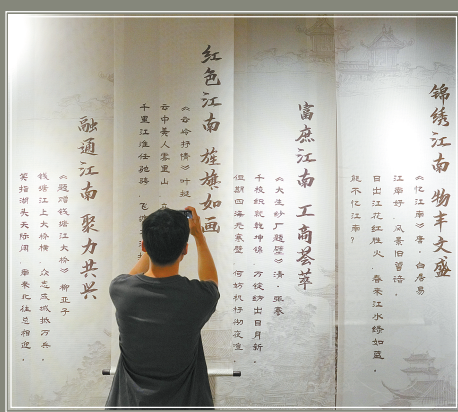 锦绣江南 物丰文盛
《忆江南》唐·白居易
江南好,风景旧曾谙。
日出江花红胜火,春来江水绿如蓝。
能不忆江南?
富庶江南 工商荟萃
《大生纱厂题壁》清·张謇
千梭织就乾坤锦,万锭纺出日月新。
但期四海无寒,何妨机杼彻夜喧。
红色江南 旌旗如画
《云岭抒情》叶挺
云中美人雾里山,立
千里江淮任驰骋,飞渡
融通江南 聚力共兴
《题赠钱塘江大桥》柳亚子
钱塘江上大桥横,众志成城抵万兵。
笑指潮头天际阔,南来北往总相迎。